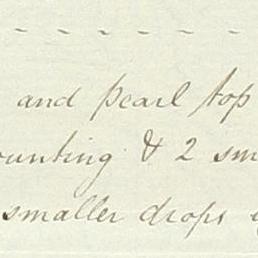 and pearl top
ounting & 2 sm
smaller drops